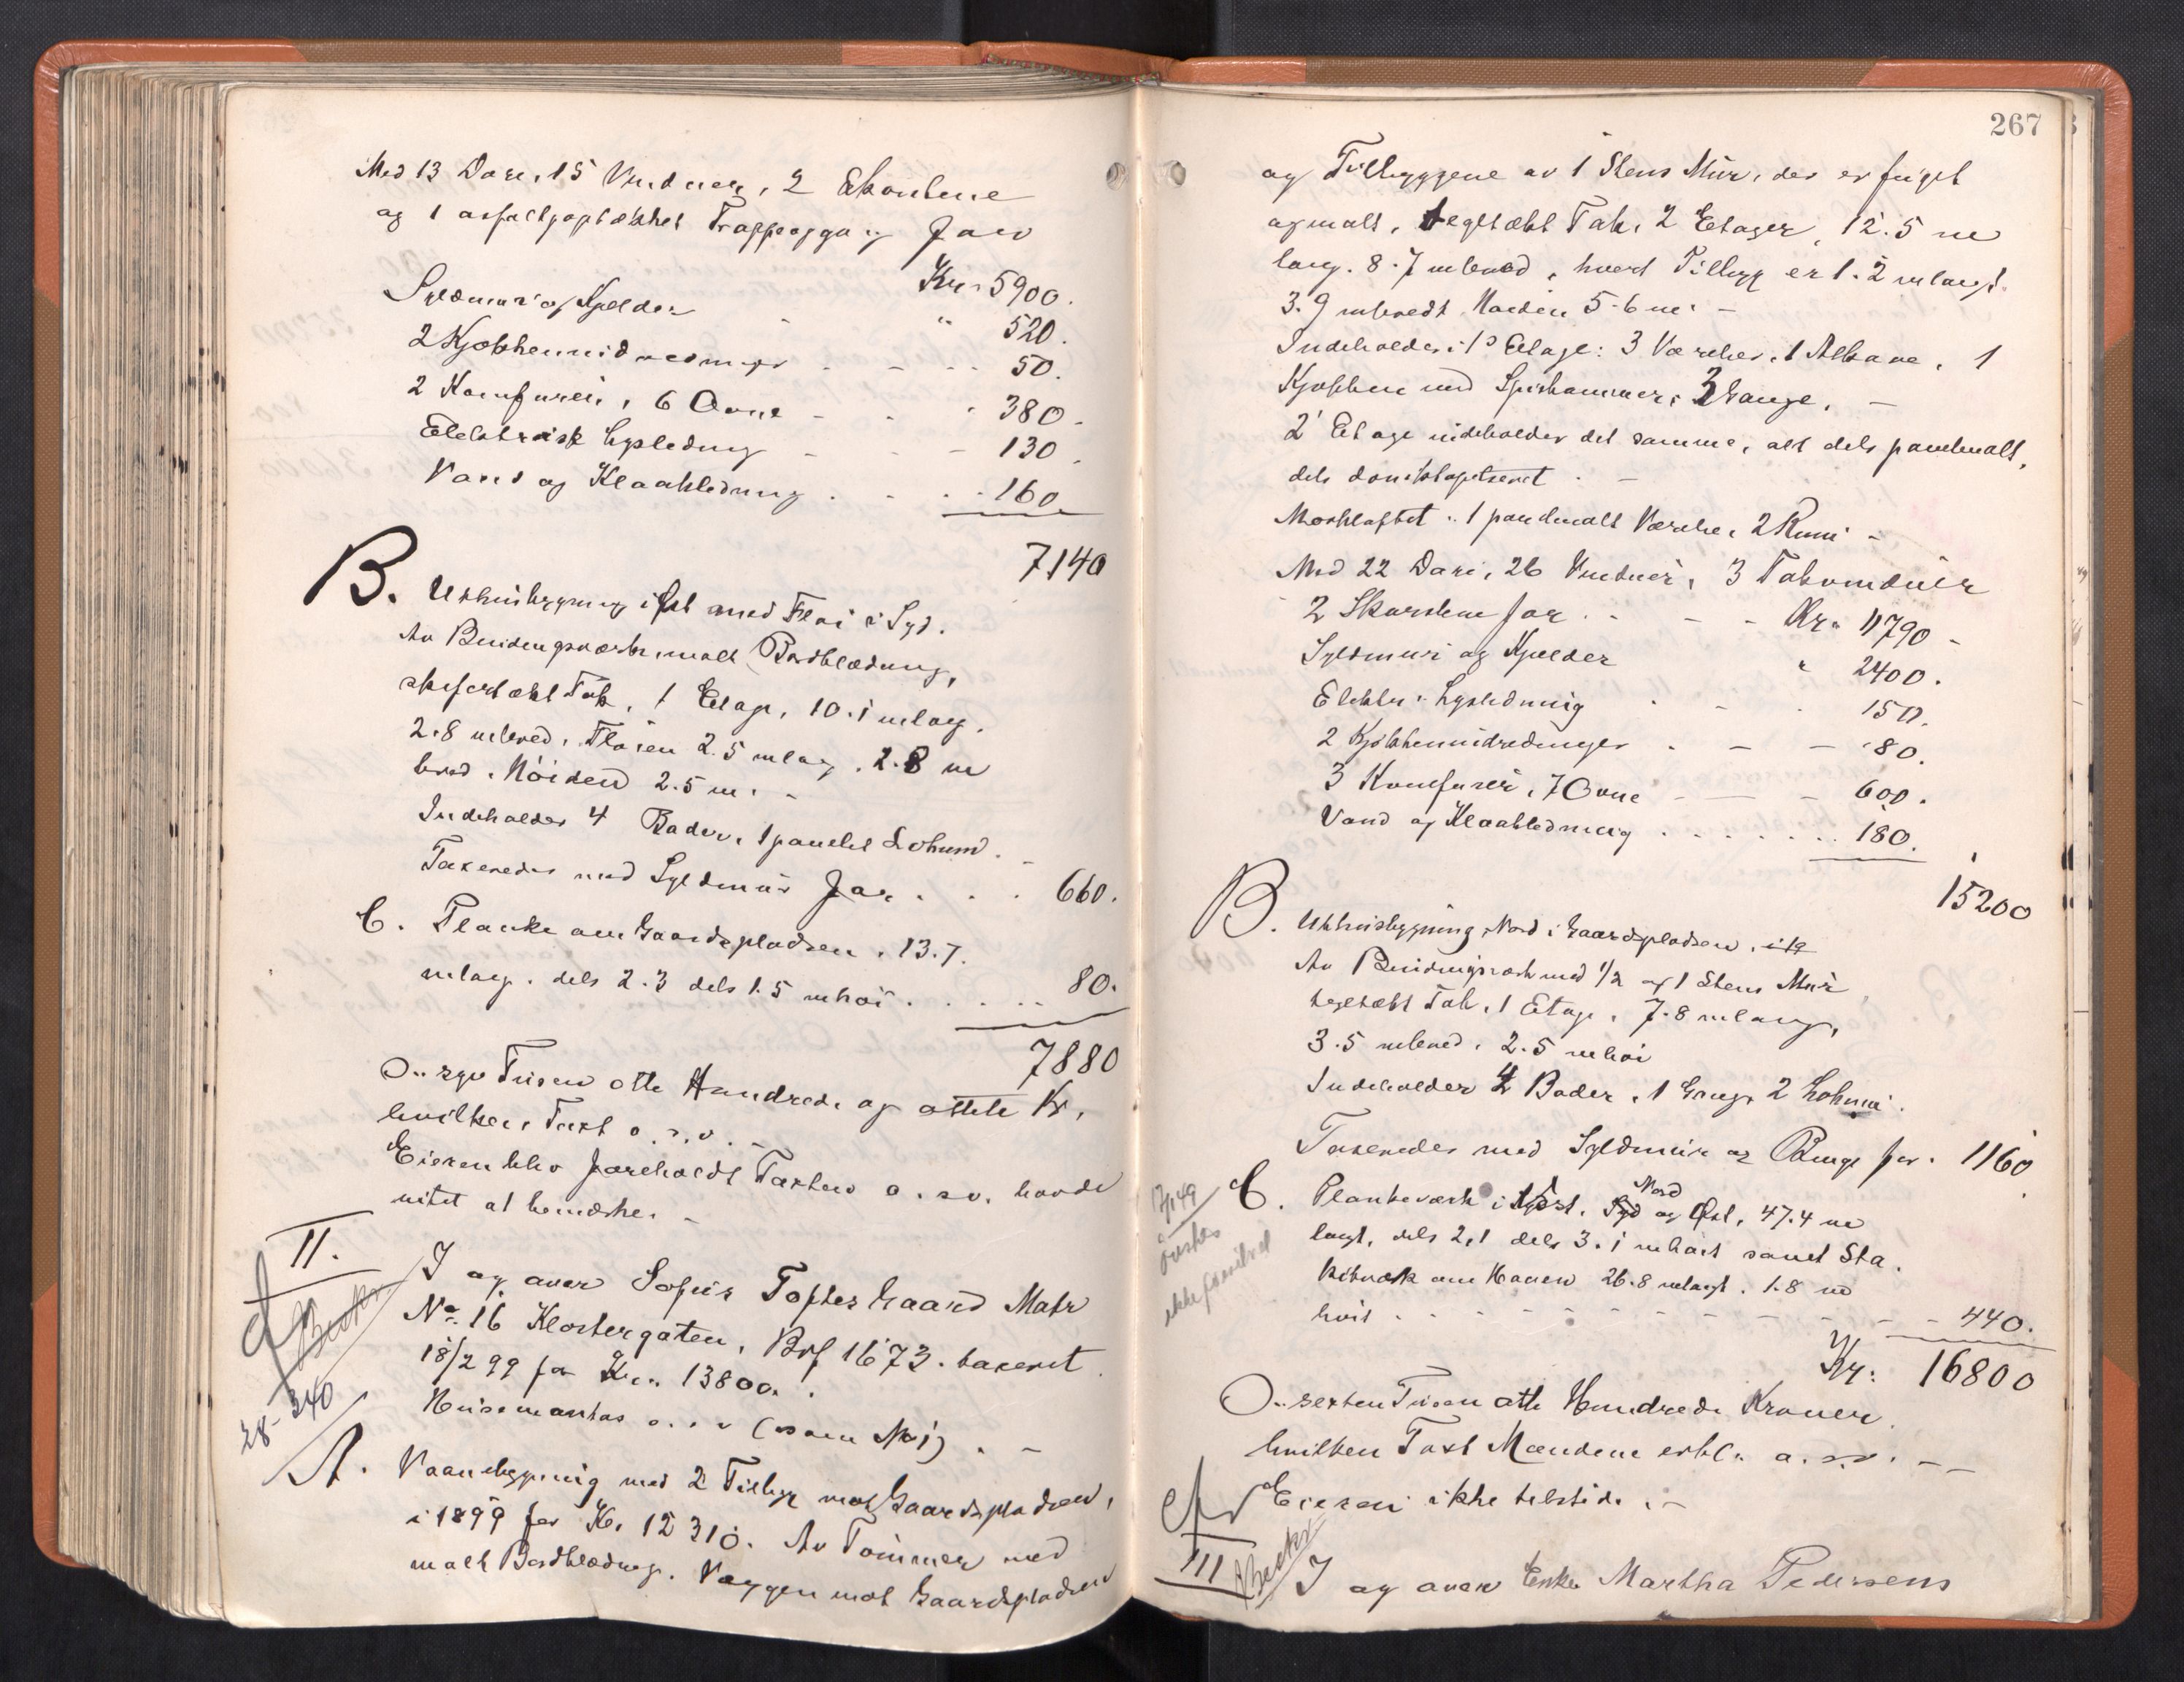 Med 13 Døre, 15 Vinduer, 2 Skorstene
og 1 asfaltpaptækket Trappeopgang for
Kr. 5900.
Syldmur og Kjelder - " 520.
2 Kjøkkenindredninger - - - 50.
2 Komfurer, 6 Ovne - - 380.
Elektrisk Lysledning - - - 130.
Vand og Kloakledning . - . . 160
7140
B. Udhusbygning i Øst med Fløi i Syd.
Av Bindingsværk malt Bordklædning,
skifertækt Tak, 1 Etage, 10.1 m lang.
2.8 m bred. Fløien 2.5 m lang, 2.8 m
bred. Høiden 2.5 m. -
Indeholder 4 Boder, 1 panelet Lokum. -
Taxeredes med Syldmur for . . . 660.
C. Planke om Gaardspladsen, 13.7.
m lang. dels 2.3 dels 1.5 m høi . . . . . 80.
7880
O: syv Tusen otte Hundrede og otteti Kr,
hvilken Taxt o.s.v. -
Eieren blev foreholdt Taxten o. s.v. havde
intet at bemærke. -
II.
Becker
28-340
I og over Sofus Toftes Gaard Matr
No. 16 Klostergaten, Brf 1673. taxeret
18/2 99 for Kr. 13800.
Husmarkas o.s.v (som No 1) . -
A. Vaanebygning med 2 Tilbyg mot Gaardspladsen,
i 1899 for Kr. 12310. Av Tømmer med
malt Bordklædng. Væggen mot Gaardspladsen
267
og Tilbyggene av 1 Stens Mur, der er fuget
og malt, tegltækt Tak, 2 Etager, 12.5 m
lang. 8.7 m bred, hvert Tilbyg er 1.2 m langt.
3.9 m bredt. Høiden 5.6 m. -
Indeholder i 1ste Etage: 3 Værelser, 1 Alkove, 1
Kjøkken med Spiskammer, 3 Gange. -
2' Etage indeholder det samme, alt dels panelmalt,
dels donsktapetseret . -
Mørkloftet: 1 panelmalt Værelse, 2 Rum -
Med 22 Døre, 26 Vinduer, 3 Takvinduer
2 Skorstene for . - - - Kr. 11790 -
Syldmur og Kjelder " 2400.
Elektr. Lysledning . - . 150.
2 Kjøkkenindredninger . - - 80.
3 Komfurer, 7 Ovne - - - 600.
Vand og Kloakledning . . . . . . . 180.
15200
B. Udhusbygning Nord i Gaardspladsen. i 19
Av Bindingsværk med 1/2 og 1 Stens Mur
tegltækt Tak, 1 Etage, 7.8 m lang,
3.5 m bred, 2.5 m høi
Indeholder 4 Boder, 1 Gang, 2 Lokum.
Taxeredes med Syldmur og Binge for. 1160
7/149
ønskes
ikke
C. Plankeværk i Vest, Syd Nord og Øst, 47.4 m
langt, dels 2.1 dels 3.1 m høit samt Sta
kitværk om Haven 26.8 m langt. 1.8 m
høit . . - - - - - - - - - 440.
Kr: 16800
O: sexten Tusen otte Hundrede Kroner.
hvilken Taxt Mændene erkl. o. s.v. - -
Eieren ikke tilstede. -
III
Becker
I og over Enke Martha Pedersens